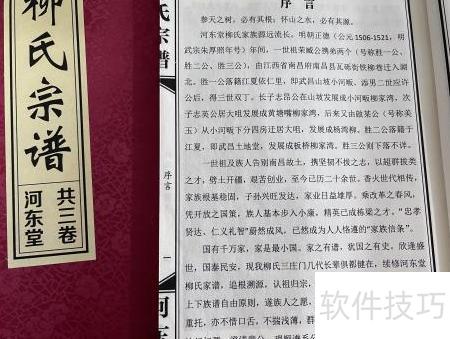 柳氏宗谱
共三卷
河东堂
氏宗谱
序言
一
河东
序言
参天之树，必有其根；怀山之水，必有其源。
河东堂柳氏家族源远流长。明朝正德（公元 1506-1521，明
武宗朱厚照年号）年间，一世祖荣威公携弟两个（号称胜一公、
胜二公、胜三公），由江西省南昌府南昌县瓦砾街铁柳巷迁入湖
北。胜一公落籍江夏依仁里，即武昌山坡小河畈，添男二世应许
公后，得三世双丁。长子志昂公在山坡发展成小河畈柳家湾。次
子志英公居大咀发展成黄塘嘴柳家湾，后来又由啟某公（号称美
玉）从小河畈下分四房迁居大咀，发展成杨湾柳。胜二公落籍于
江夏，即武昌土地堂，发展成板桥柳家湾。胜三公则下落不详。
一世祖及族人告别南昌故土，携坚韧不拔之志，以超群拔类
之才，劈土开疆，艰苦创业，至今已历二十余世。香火世代相传，
家族根基稳固，子孙兴旺发达，家业日益雄厚。乘改革之春风，
凭开放之国策，族人基本步入小康，精英已成栋梁之才。“忠孝
贤达、仁义礼智”蔚然成风，已然成为人人恪遵的“家族信条”。
国有千万家，家是最小国。家之有谱，犹国之有史。欣逢盛
世，国泰民安，现我柳氏三庄门几代长辈俱都健在，续修河东堂
柳氏家谱，追根溯源，认祖归宗，
上下族谱自由原则，遂族人之愿，
重托，亦不惜口舌，不揣浅薄，群
软件技巧